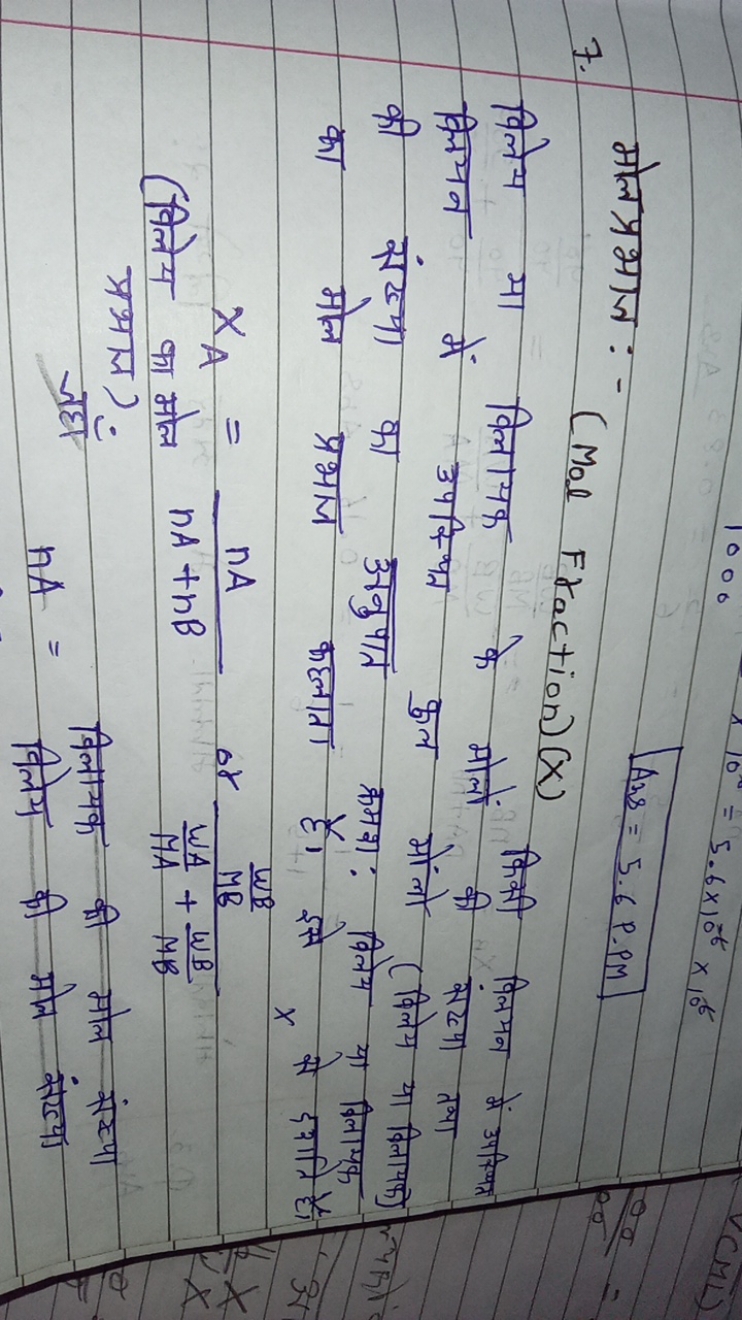 1000
x 10⁶ = 5.6 x 10⁻⁶ x 10⁶
Ans = 5.6 P.PM
7. मोलप्रभाज :- (Mol Fraction) (X)
विलेय या विलायक के मोलो किसी विलयन में उपस्थित
विलयन में उपस्थित कुल मोलो की संख्या तथा
की संख्या का अनुपात क्रमश: (विलेय या विलायक)
का मोल प्रभाज कहलाता है। इसे x से दर्शाते है।
विलेय या विलायक
XA = nA / nA + nB or WB / MB / WA / MA + WB / MB
(विलेय का मोल
प्रभाज)
जहाँ
विलायक की मोल संख्या
nA = विलेय की मोल संख्या